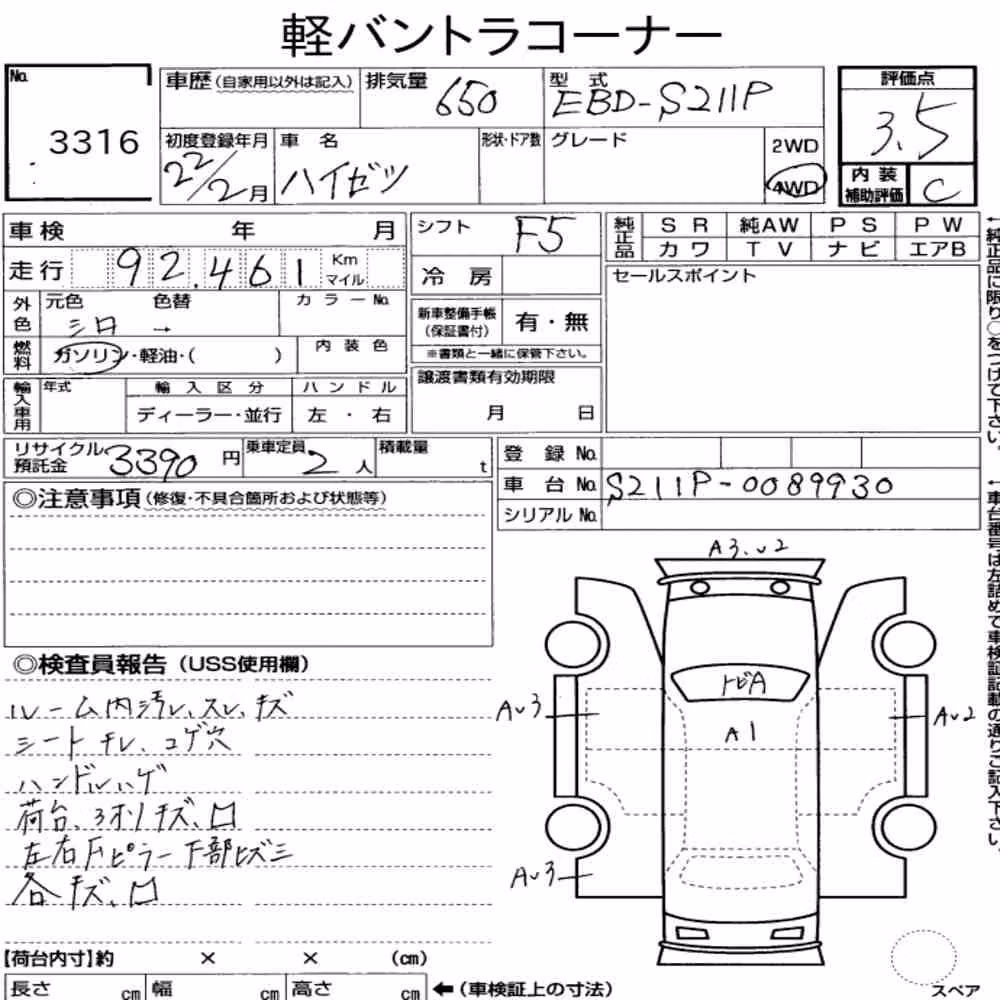 軽バントラコーナー
No. 3316
車歴(自家用以外は記入) 排気量 650 型式 EBD-S211P 評価点 3.5
初度登録年月 22/2月 車名 ハイゼツ 形状・ドア数 グレード 2WD 4WD 内装補助評価 C
車検 年 月 シフト F5 純正品 SR 純AW PS PW
カワ TV ナビ エアB
走行 92.461 Km マイル 冷房 セールスポイント
外色 元色 色替 カラーNo.
シロ →
新車整備手帳(保証書付) 有・無
※書類と一緒に保管下さい。
燃料 ガソリン・軽油・( ) 内装色
譲渡書類有効期限
月 日
輸入車用 年式 輸入区分 ハンドル
ディーラー・並行 左・右
リサイクル預託金 3390円 乗車定員 2人 積載量 t
登録No.
車台No. S211P-0089930
シリアルNo.
◎注意事項(修復・不具合箇所および状態等)
◎検査員報告(USS使用欄)
ルーム内汚レ、スレ、キズ
シートキレ、コゲ穴
ハンドルハゲ
荷台、3オリキズ、凹
左右Fピラー下部ヒズミ
各キズ、凹
A3.U2
トビA
A1
AU3
AU2
AU3
【荷台内寸】約 × × (cm)
長さ cm 幅 cm 高さ cm ←(車検証上の寸法)
スペア
←純正品に限り○をつけて下さい。
←車台番号は左詰めで車検証記載の通りご記入下さい。